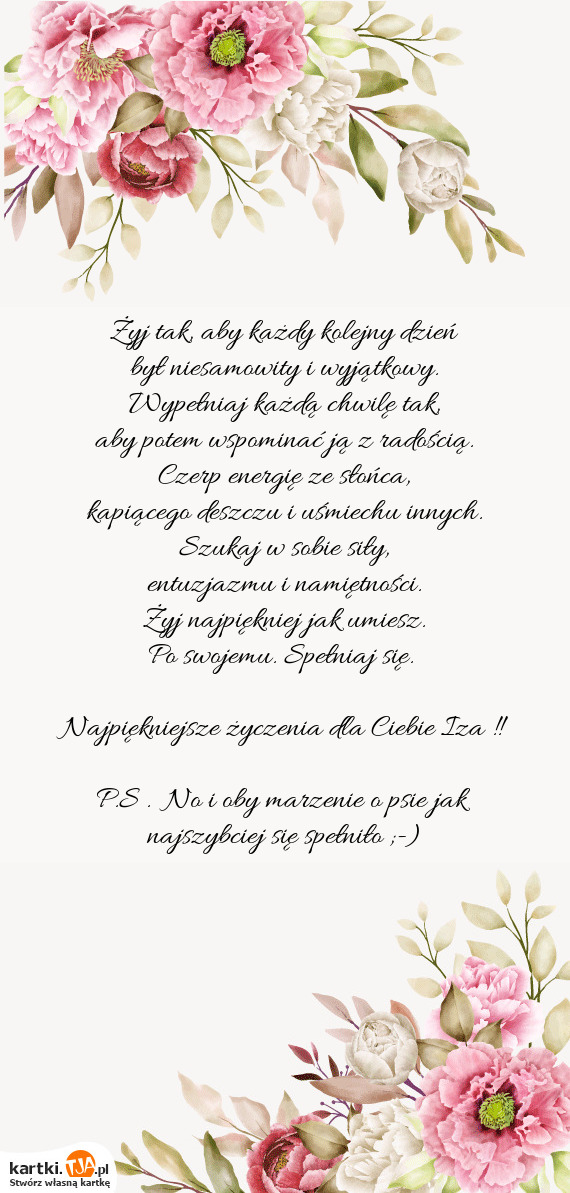 Żyj tak, aby każdy kolejny dzień
był niesamowity i wyjątkowy.
Wypełniaj każdą chwilę tak,
aby potem wspominać ją z radością.
Czerp energię ze słońca,
kapiącego deszczu i uśmiechu innych.
Szukaj w sobie siły,
entuzjazmu i namiętności.
Żyj najpiękniej jak umiesz.
Po swojemu. Spełniaj się.
Najpiękniejsze życzenia dla Ciebie Iza !!
P.S . No i oby marzenie o psie jak
najszybciej się spełniło ;-)
kartki.TJA.pl
Stwórz własną kartkę